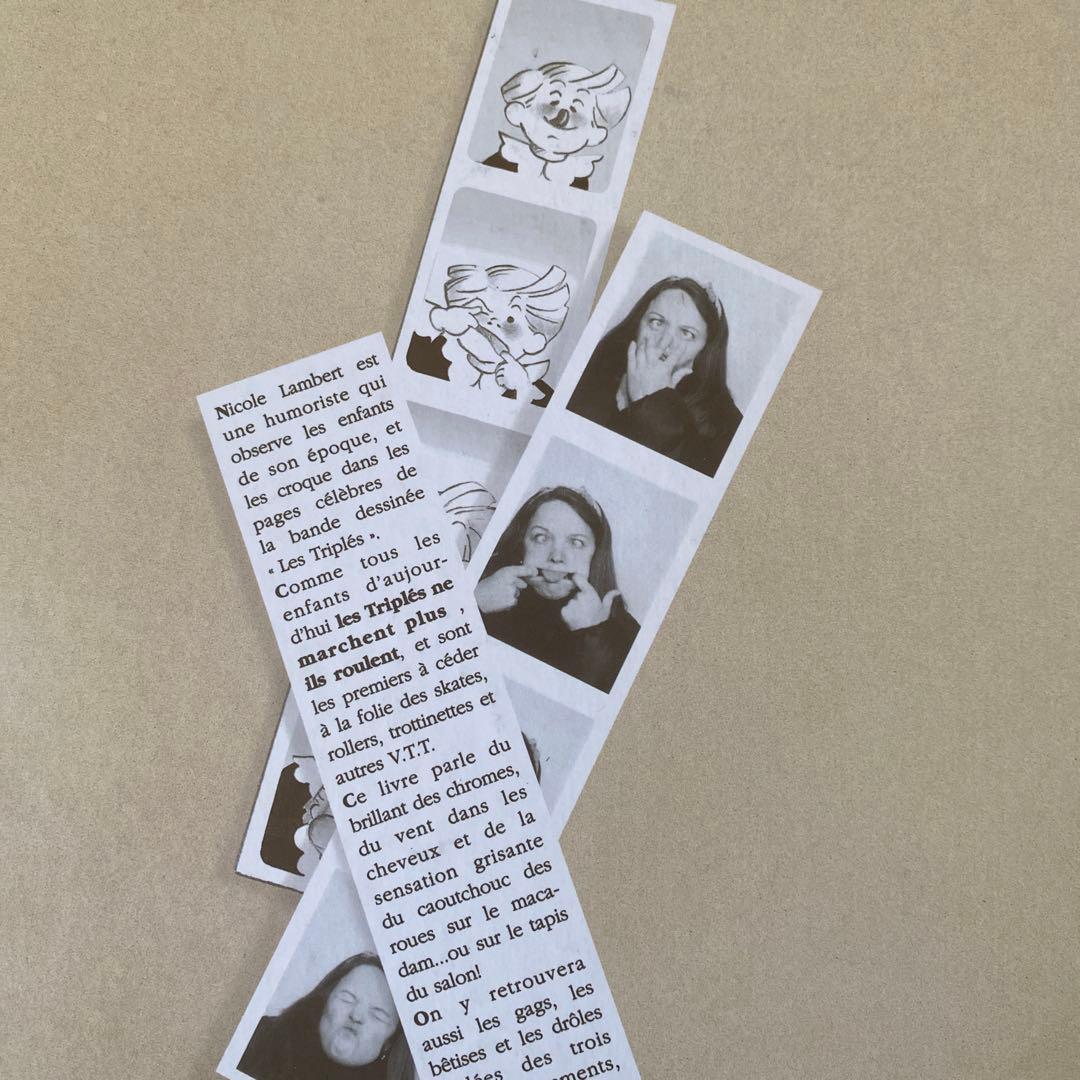 Nicole Lambert est
une humoriste qui
observe les enfants
de son époque, et
les croque dans les
pages célèbres de
la bande dessinée
« Les Triplés ».
Comme tous les
enfants d'aujour-
d'hui les Triplés ne
marchent plus ,
ils roulent, et sont
les premiers à céder
à la folie des skates,
rollers, trottinettes et
autres V.T.T.
Ce livre parle du
brillant des chromes,
du vent dans les
cheveux et de la
sensation grisante
du caoutchouc des
roues sur le maca-
dam...ou sur le tapis
du salon!
On y retrouvera
aussi les gags, les
bêtises et les drôles
des trois